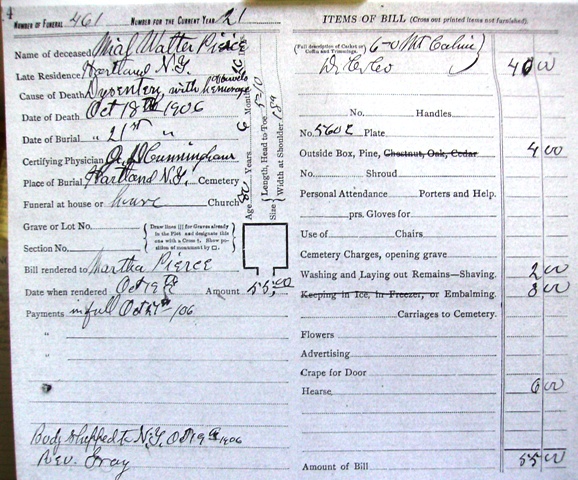 4
NUMBER OF FUNERAL 461 NUMBER FOR THE CURRENT YEAR 21
Name of deceased Walter Pierce
Late Residence Hartland N.Y.
Cause of Death Dysentery, with hemorage bowels
Date of Death Oct 18th 1906
Date of Burial " 21st "
Certifying Physician Cunningham
Place of Burial Hartland N.Y. Cemetery
Funeral at house or Church
Grave or Lot No.
Section No.
Draw lines for Graves already in the Plot and designate this one with a Cross †. Show position of monument by □.
Bill rendered to Martha Pierce
Date when rendered Oct 19th Amount 55.00
Payments in full Oct 27th -06
"
"
Body shipped to N.Y. Oct 19th 1906
Rev. Gray
Age 80 Years 6 Months
Size Length, Head to Toe 5-10
Width at Shoulder
ITEMS OF BILL (Cross out printed items not furnished).
(Full description of Casket or Coffin and Trimmings) 6-0 Mt
40 00
No. Handles
No. Plate
Outside Box, Pine, Chestnut, Oak, Cedar 4 00
No. Shroud
Personal Attendance Porters and Help.
prs. Gloves for
Use of Chairs
Cemetery Charges, opening grave
Washing and Laying out Remains—Shaving. 2 00
Keeping in Ice, in Freezer, or Embalming. 3 00
Carriages to Cemetery.
Flowers
Advertising
Crape for Door
Hearse 6 00
Amount of Bill 55 00